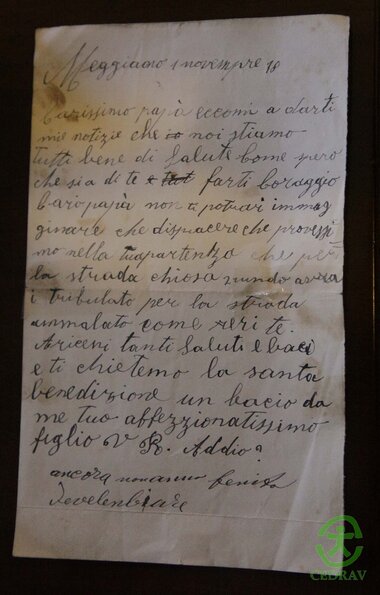 Meggiano 1 novempre 18
Carissimo papà eccomi a darti
mie notizie che io noi stiamo
tutti bene di Salute Come spero
che sia di te e farti coraggio
Caro papà non ti potrai immag
ginare che dispiacere che provessi
mo nella tua partenza che per
la strada chiosa
i tribulato per la strada
ammalato come reri te.
Ariceni tanti Saluti e baci
e ti chietemo la santa
benedizione un bacio da
me tuo affezzionatissimo
figlio V R. Addio
ancora non anno
CEDRAV